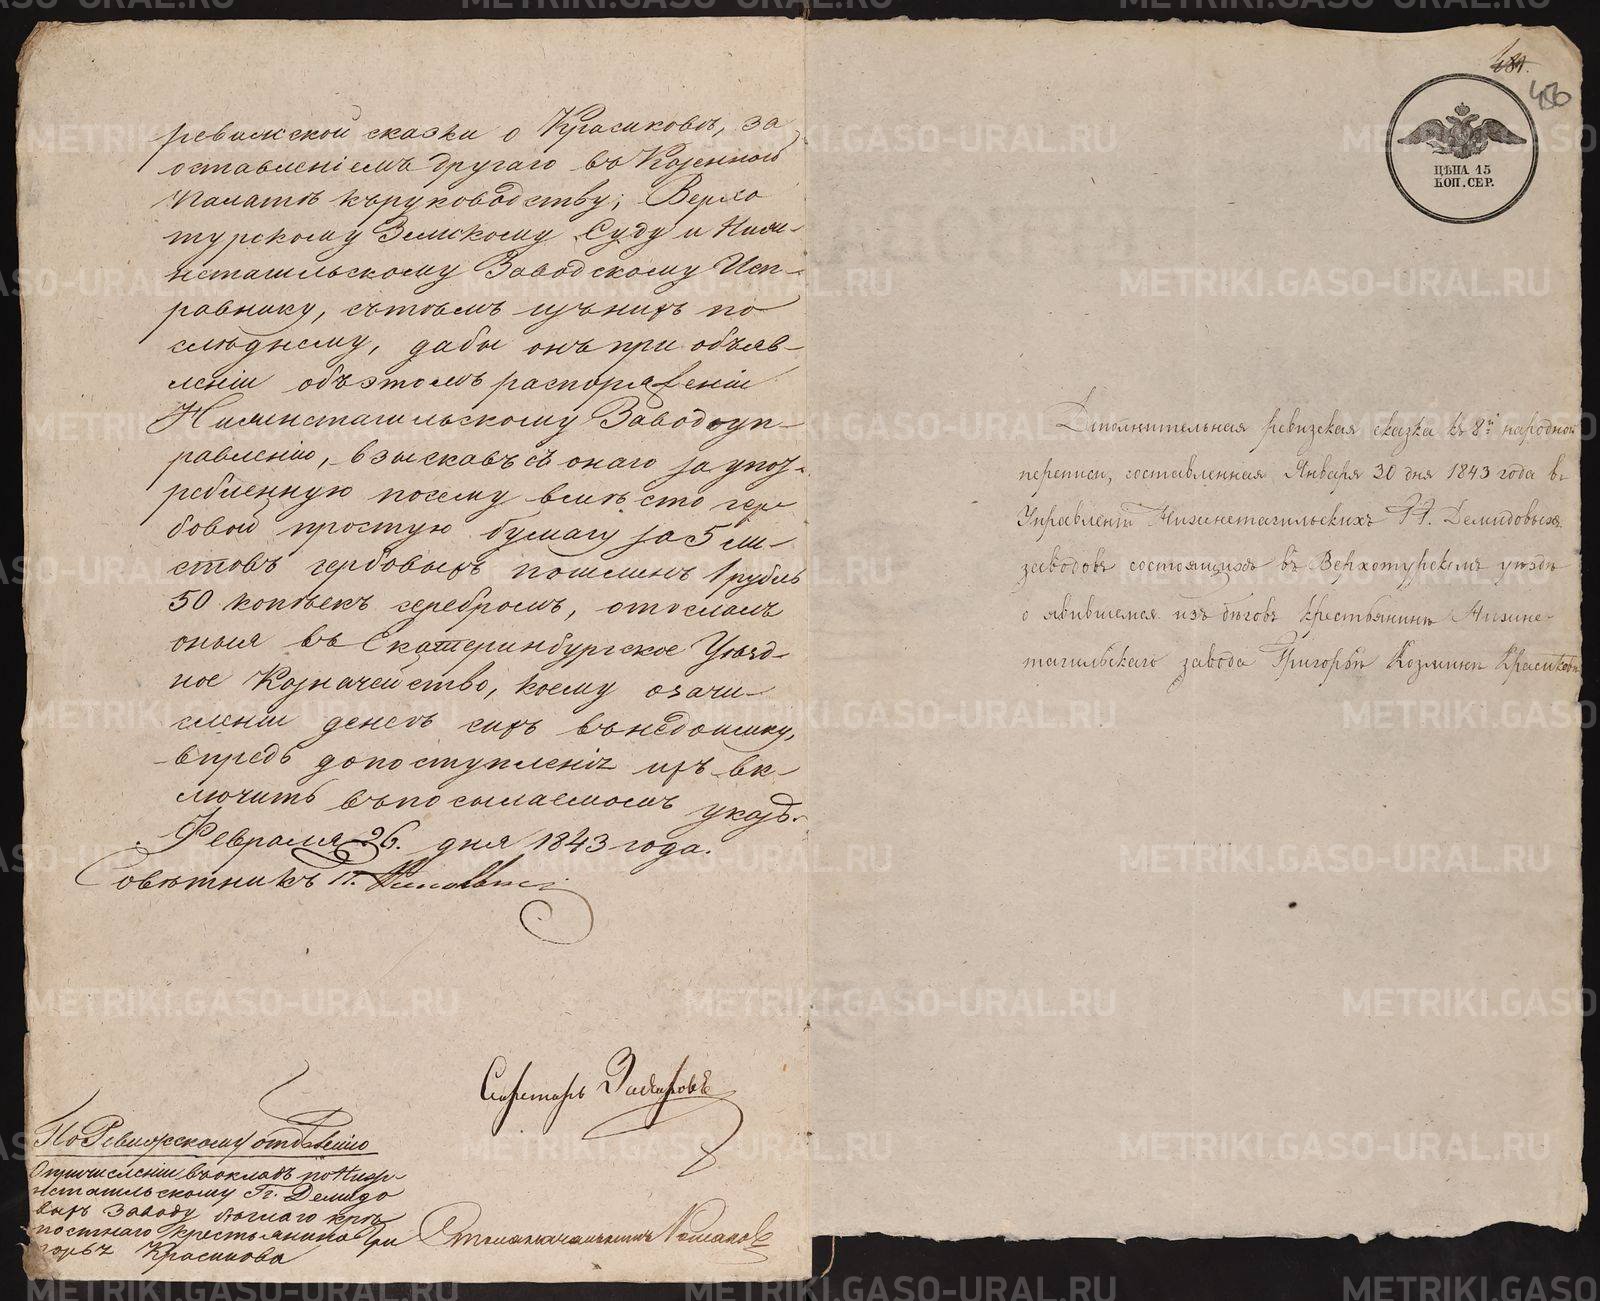 ревижской сказки о Красиковѣ, за
оставленіемъ другаго въ Казенной
Палатѣ къ руководству; Верхо
турскому Земскому Суду и Ниж-
нетагильскому Заводскому Исп-
равнику, съ тѣмъ изъ нихъ по
слѣднему, дабы онъ при объяв-
леніи объ этомъ распоряженіи
Нижнетагильскому Заводоуп-
равленію, взыскавъ съ онаго за упот-
ребленную посему вмѣсто гер
бовой простую бумагу за 5 ли-
стовъ гербовыхъ пошлинъ 1 рубль
50 копѣекъ серебромъ, отослалъ
оныя въ Екатеринбургское Уѣзд-
ное Казначейство, коему о зачи-
сленіи денегъ сихъ въ недоимку,
впредь до поступленія ихъ вк-
лючить въ посылаемомъ указѣ.
Февраля 26. дня 1843 года.
Совѣтникъ П.
Секретарь Захаровъ
По Ревижскому отдѣленію
О причисленіи въ окладъ по Ниж-
нетагильскому Гг. Демидо
выхъ заводу бѣглаго крѣ
постнаго крестьянина Гри
горья Красикова
Столоначальникъ
481.
456
ЦѢНА 15
КОП. СЕР.
Дополнительная ревизская сказка къ 8й народной
переписи, составленная Января 30 дня 1843 года въ
Управленіи Нижнетагильскихъ ГГ. Демидовыхъ
заводовъ состоящихъ въ Верхотурскомъ уѣздѣ
о явившемся изъ бѣговъ крестьянинѣ Нижне-
тагильскаго завода Григорьѣ Козминѣ Красиковѣ
METRIKI.GASO-URAL.RU